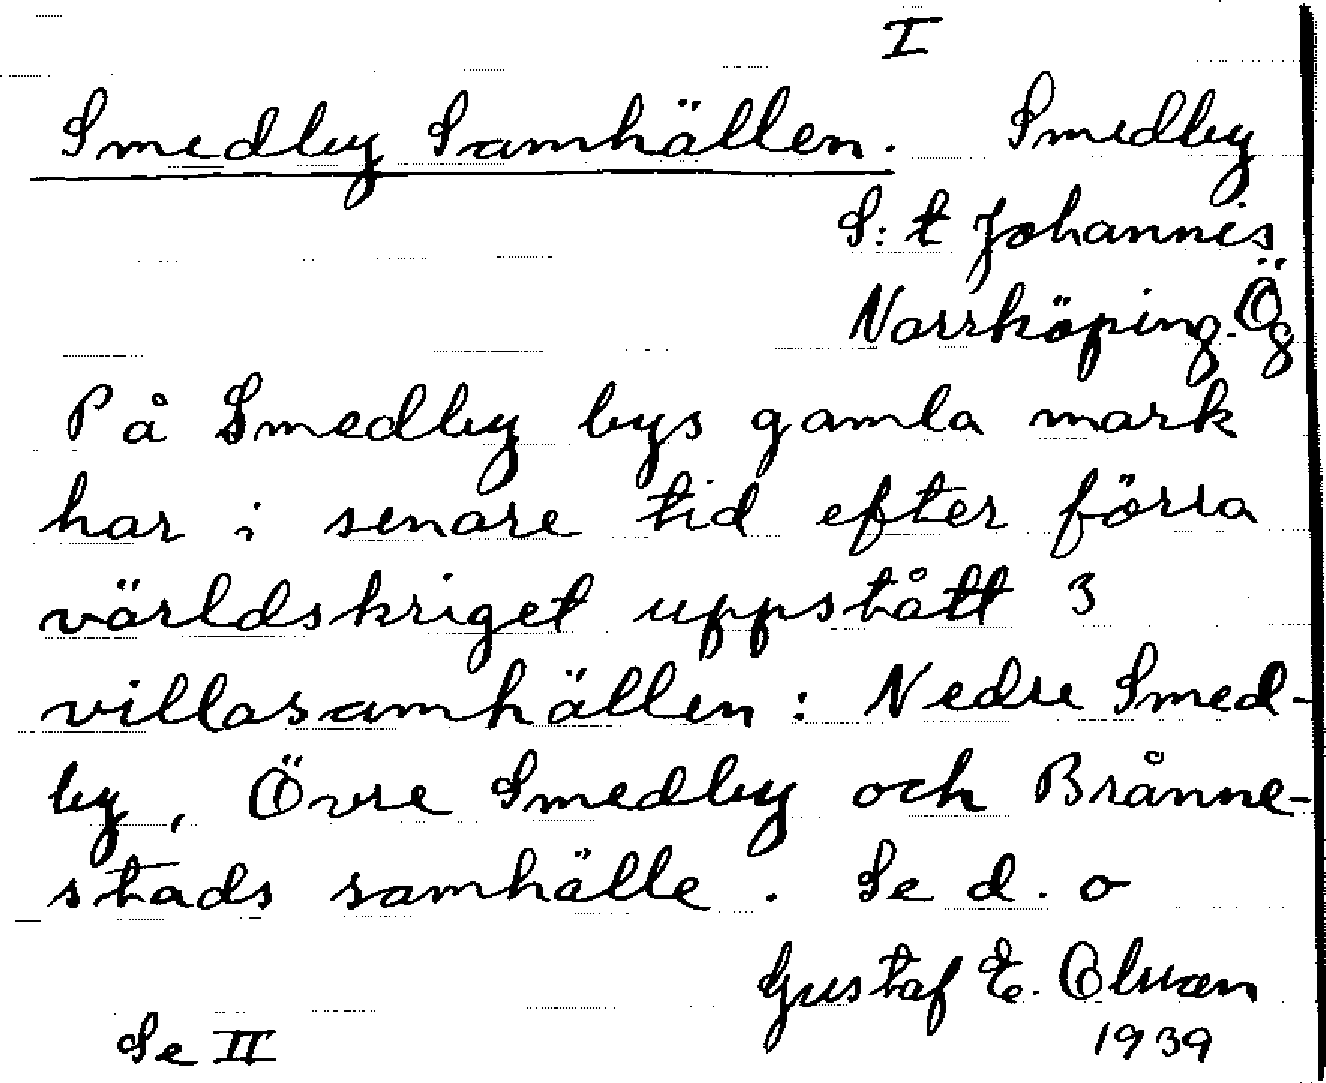 I
Smedby Samhällen. Smedby
S:t Johannis
Norrköping. Ög
På Smedby bys gamla mark
har i senare tid efter förra
världskriget uppstått 3
villasamhällen: Nedre Smed-
by, Övre Smedby och Brånne-
stads samhälle. Se d. o
Gustaf E. Olman
Se II 1939